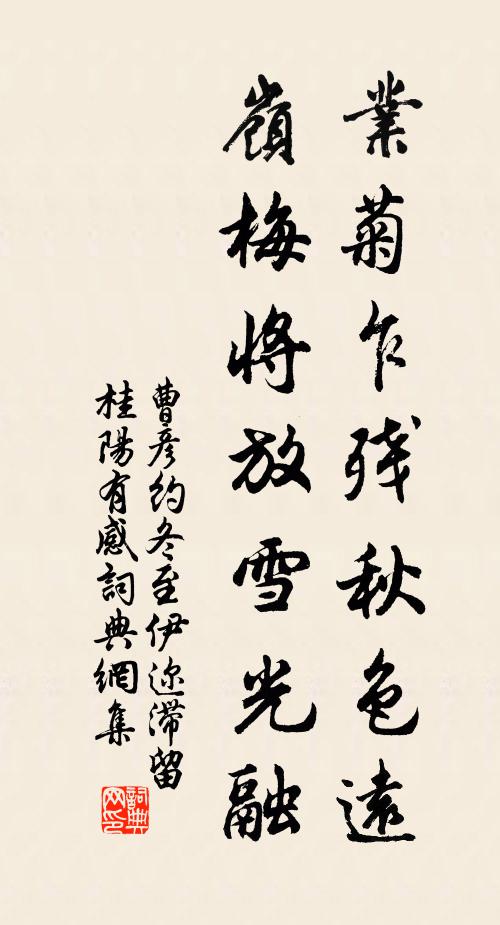 業菊乍残秋色遠
嶺梅將放雪光融
曹彦約冬至伊迩滯留
桂陽有感詞典網集
詞典网印